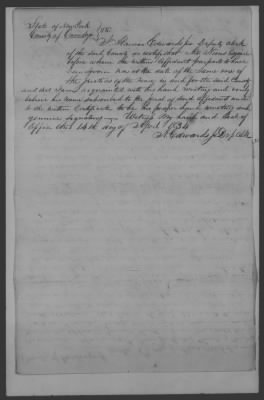 State of New York
County of Oswego } ss.
I Edwards jr Deputy clerk
of the said County do certify that
before whom the within affidavit purports to have
been sworn was at the date of the same one of
the justices of the peace in and for the said County
and that I am acquainted with his hand writing and verily
believe his name subscribed to the jurat of said affidavit and
to the within Certificate to be his proper hand writing and
genuine signature — Witness my hand and Seal of
Office this 14th day of April 1834
Edwards jr Dep Clk